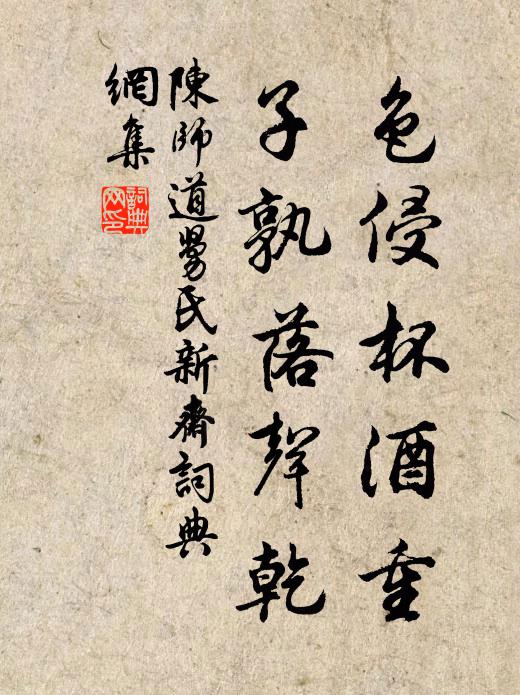 色侵杯酒重
子孰落聲乾
陳師道勇氏新齋詞典
網集
詞典
网印